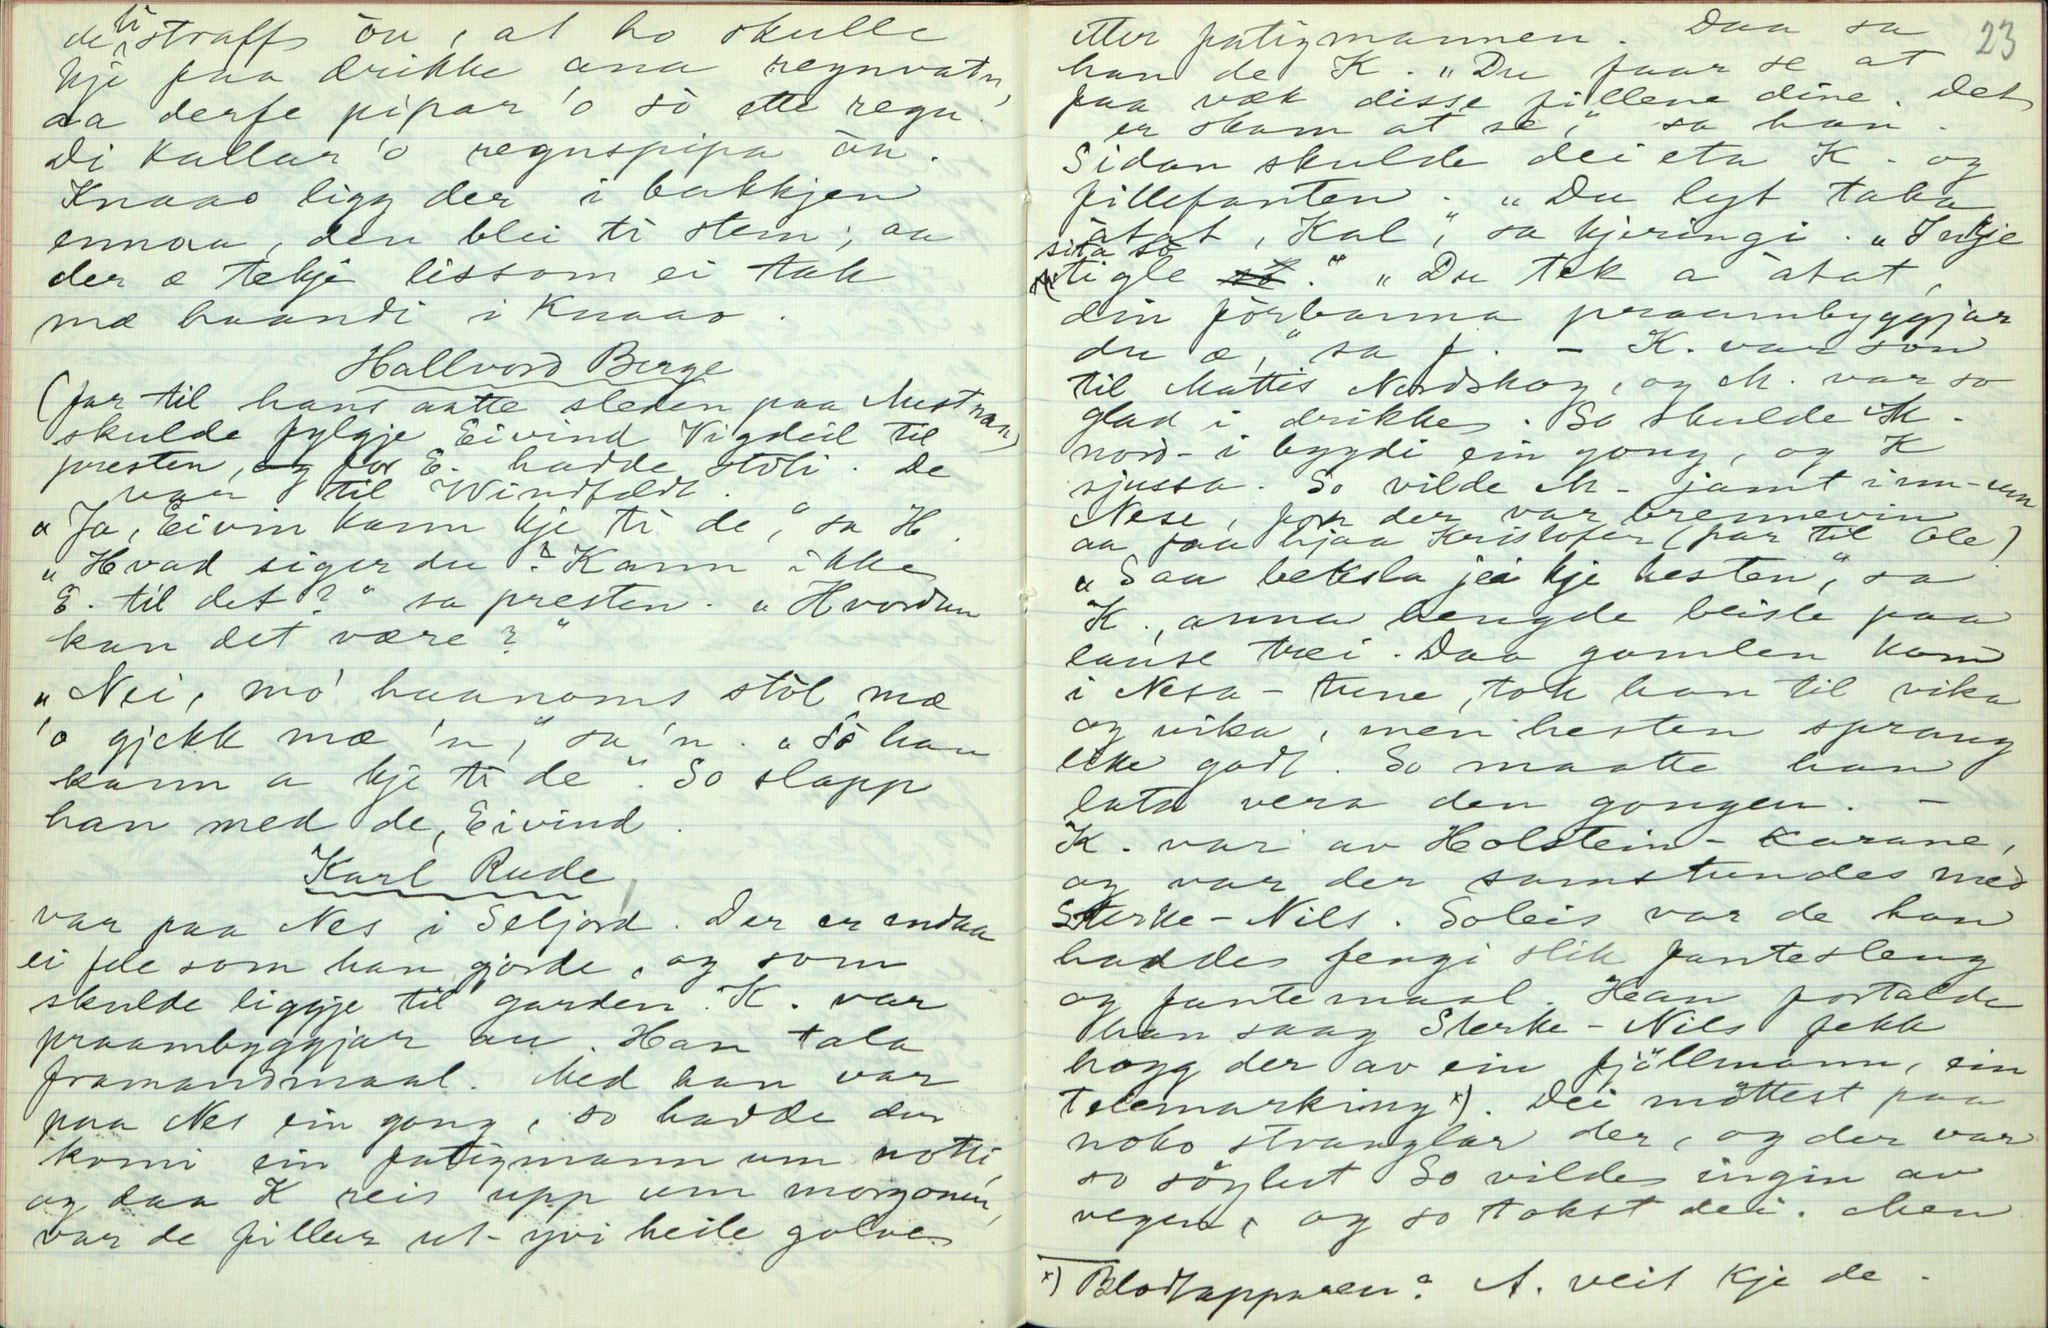 de ti straff ôn, at ho skulle
kje faa drikke ana regnvatn,
aa derfe pipar 'o sò ette regn.
Di kallar 'o regnspipa ôn.
Knaao ligg der i bakkjen
ennaa, den blei ti stein; aa
der æ tekje lissom ei tak
mæ haandi i Knaao.
Hallvord Berge
(far til hans aatte sleden paa Austman)
skulde fylgje Eivind Vigdeil til
presten, og for E. hadde stoli. De
var til Windfeldt.
"Ja, Eivin kann kje ti de," sa H.
"Hvad siger du? Kann ikke
E. til det?" sa presten. "Hvordan
kan det være?"
"Nei, mó haanoms stòl mæ
'o gjekk mæ 'n," sa 'n. "Sò han
kann a kje ti de". So slapp
han med de, Eivind.
Karl Rude
var paa Nes i Seljord. Der er endaa
ei fele som han gjorde, og som
skulde liggje til garden. K. var
praambyggjar au. Han tala
framandmaal. Med han var
paa Nes ein gong, so hadde der
komi ein fatigmann um notti,
og daa K reis upp um morgonen,
var de filler ut-yvi heile golve
23
etter fatigmannen. Daa sa
han de K. "Du faar se at
faa væk disse fillene dine. Det
er skam at se," sa han.
Sidan skulde dei eta K. og
fillefanten. "Du lyt taka
åtat, Kal," sa kjeringi. "Inkje
sita so
tigle." "Du tek a åtat,
din förbanna praambyggjar
du æ," sa f. - K. var son
til Mattis Nordskog, og M. var so
glad i drikke. So skulde M.
nord-i bygdi ein gong, og K
sjussa. So vilde M- jamt inn-um
Nese, for der var brennevin
aa faa hjaa Kristofer (far til Ole)
"Saa beksla jei kje hesten," sa
K., anna hengde beisle paa
lause træi. Daa gamlen kom
i Nesa-tune, tok han til vika
og vika, men hesten sprang
like godt. So maatte han
lata vera den gongen. -
K. var av Holstein-karane,
og var der samstundes med
Sterke-Nils. Soleis var de han
hadde fengi slik fantesleng
og fantemaal. Han fortalde
han saag Sterke-Nils fekk
hogg der av ein fjöllmann, ein
telemarking x). Dei möttest paa
noko stranglar der, og der var
so söylut So vilde ingin av
vegen, og so tokst dei. Men
x) Blodtapparen? A. veit kje de.